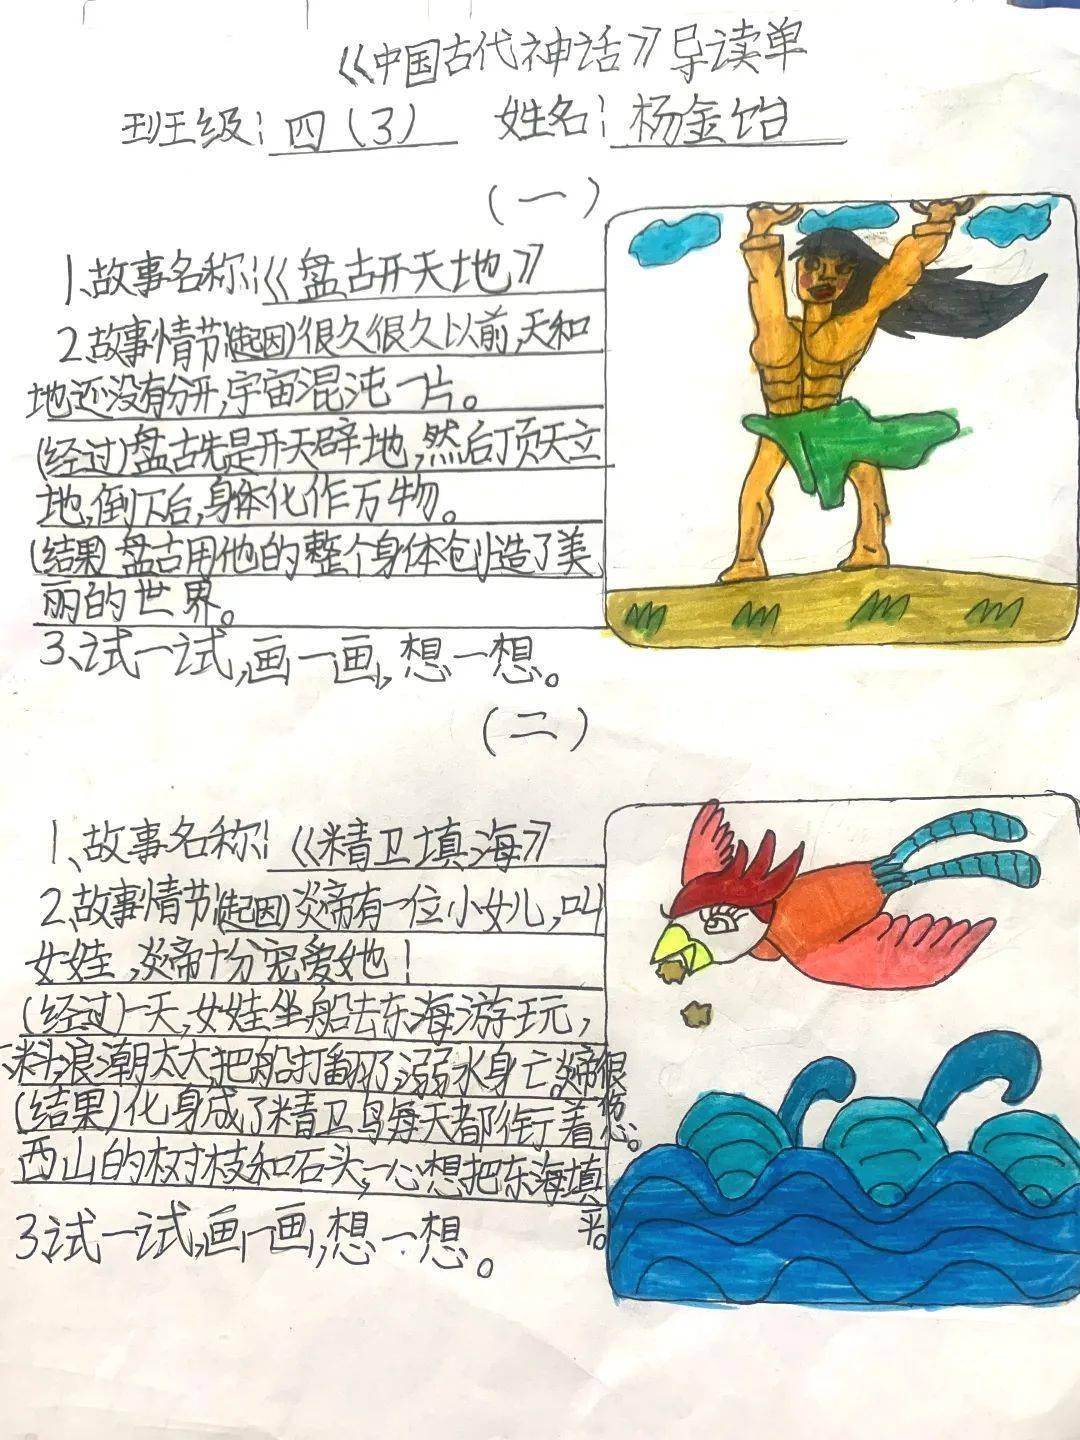 《中国古代神话》导读单
班级：四（3） 姓名：杨金饴
（一）
1、故事名称：《盘古开天地》
2、故事情节(起因)很久很久以前,天和
地还没有分开,宇宙混沌一片。
(经过)盘古先是开天辟地,然后顶天立
地,倒下后,身体化作万物。
(结果)盘古用他的整个身体创造了美
丽的世界。
3、试一试,画一画,想一想。
（二）
1、故事名称：《精卫填海》
2、故事情节(起因)炎帝有一位小女儿,叫
女娃,炎帝十分宠爱她！
(经过)一天,女娃坐船去东海游玩,
不料,浪潮太大,把船打翻了,溺水身亡。炎帝很伤心。
(结果)化身成了精卫鸟每天都衔着
西山的树枝和石头,一心想把东海填平。
3、试一试,画一画,想一想。